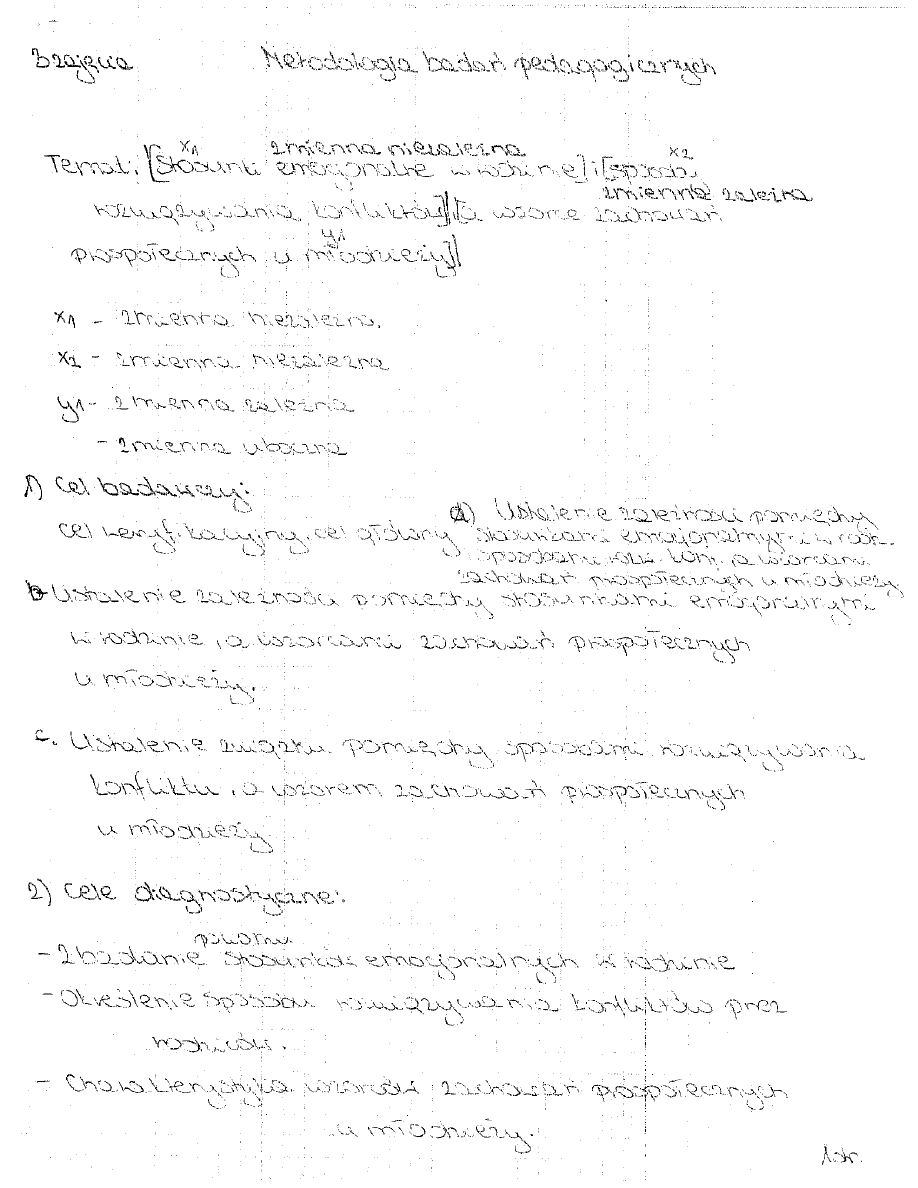 3 zajęcia Metodologia badań pedagogicznych
x1 zmienna niezależna x2
Temat: [Stosunki emocjonalne w rodzinie] i [sposób
zmienna zależna
rozwiązywania konfliktów] [a wzorce zachowań
y1
prospołecznych u młodzieży]
x1 - zmienna niezależna.
x2 - zmienna niezależna
y1 - zmienna zależna
- zmienna uboczna
1) Cel badawczy:
cel weryfikacyjny, cel główny a) Ustalenie zależności pomiędzy
stosunkami emocjonalnymi w rodz.
i sposobami rozw. konf. a wzorcami
zachowań prospołecznych u młodzieży
b Ustalenie zależności pomiędzy stosunkami emocjonalnymi
w rodzinie, a wzorcami zachowań prospołecznych
u młodzieży.
c. Ustalenie związku pomiędzy sposobami rozwiązywania
konfliktu, a wzorem zachowań prospołecznych
u młodzieży
2) Cele diagnostyczne:
poziomu
- Zbadanie stosunków emocjonalnych w rodzinie
- Określenie sposobu rozwiązywania konfliktów przez
rodziców.
- Charakterystyka wzorców zachowań prospołecznych
u młodzieży.
1str.